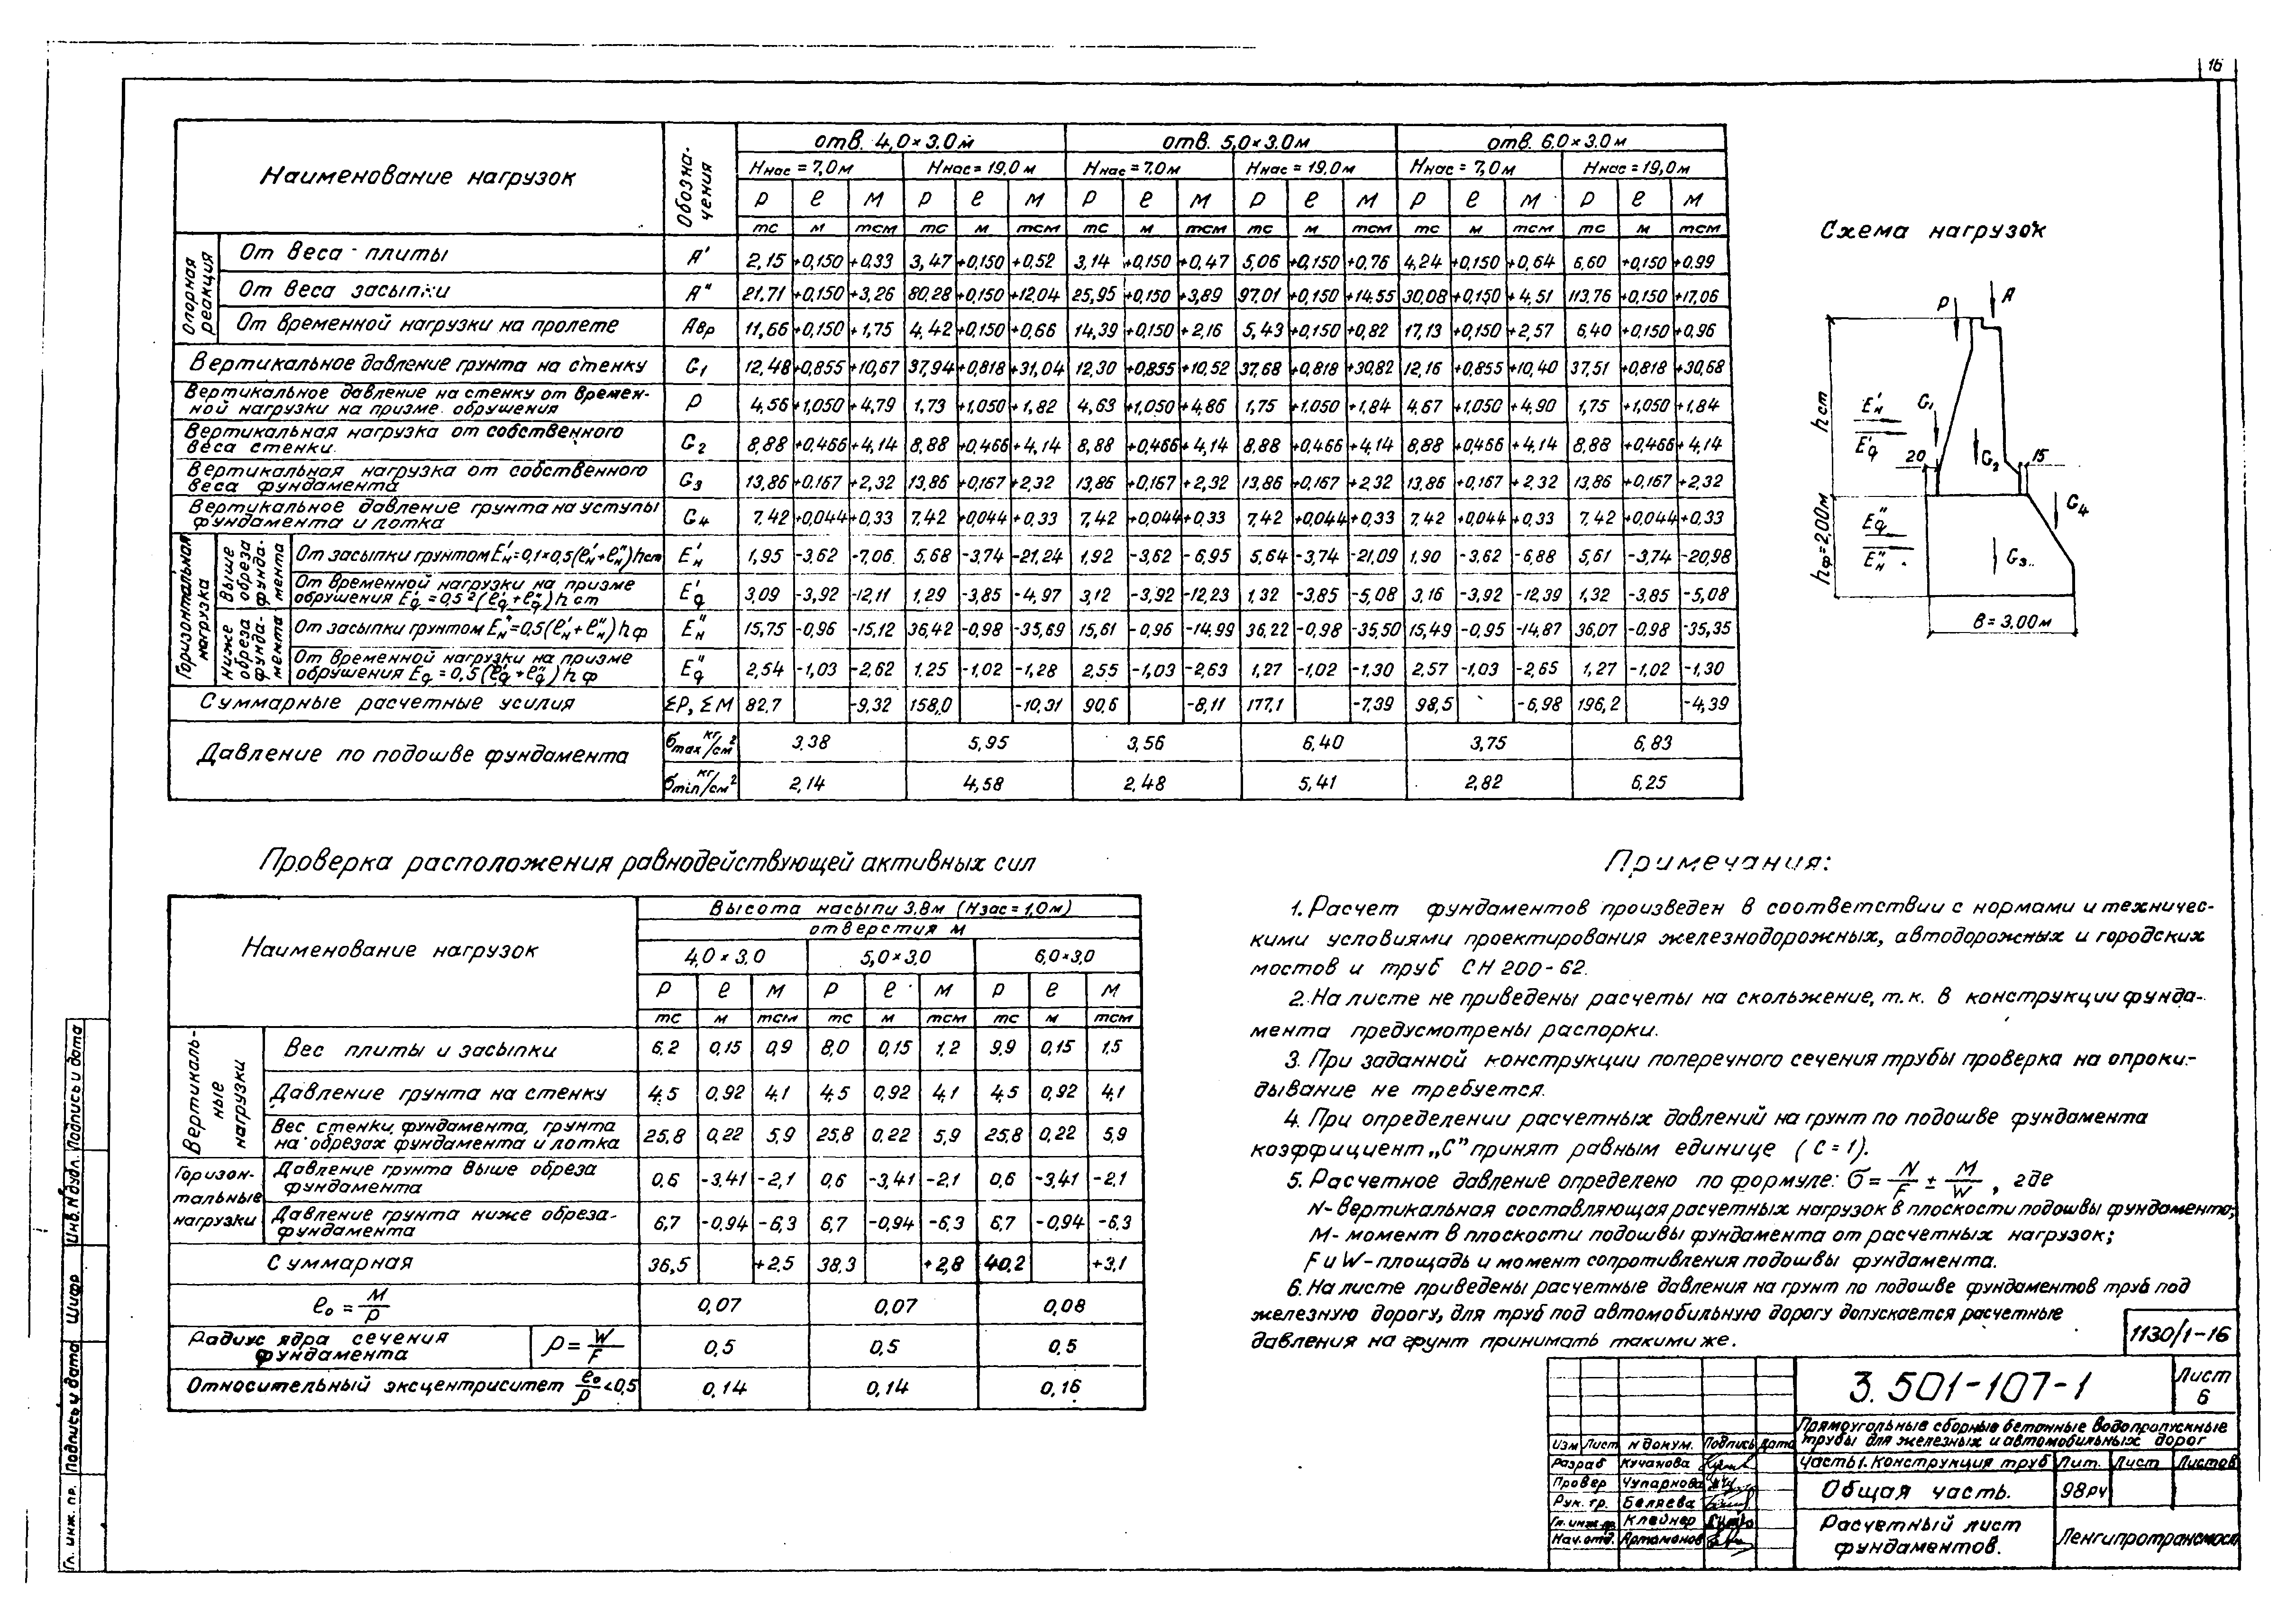 16
Наименование нагрузок
Обозна-
чения
отв. 4,0×3,0м
отв. 5,0×3,0м
отв. 6,0×3,0м
Ннас = 7,0м Ннас = 19,0м Ннас = 7,0м Ннас = 19,0м Ннас = 7,0м Ннас = 19,0м
P e M P e M P e M P e M P e M P e M
тс м тсм тс м тсм тс м тсм тс м тсм тс м тсм тс м тсм
Опорная реакция
От веса плиты A' 2,15 +0,150 +0,33 3,47 +0,150 +0,52 3,14 +0,150 +0,47 5,06 +0,150 +0,76 4,24 +0,150 +0,64 6,60 +0,150 +0,99
От веса засыпки A" 21,71 +0,150 +3,26 80,28 +0,150 +12,04 25,95 +0,150 +3,89 97,01 +0,150 +14,55 30,08 +0,150 +4,51 113,76 +0,150 +17,06
От временной нагрузки на пролете Aвр 11,66 +0,150 +1,75 4,42 +0,150 +0,66 14,39 +0,150 +2,16 5,43 +0,150 +0,82 17,13 +0,150 +2,57 6,40 +0,150 +0,96
Вертикальное давление грунта на стенку G1 12,48 +0,855 +10,67 37,94 +0,818 +31,04 12,30 +0,855 +10,52 37,68 +0,818 +30,82 12,16 +0,855 +10,40 37,51 +0,818 +30,68
Вертикальное давление на стенку от времен-
ной нагрузки на призме обрушения P 4,56 +1,050 +4,79 1,73 +1,050 +1,82 4,63 +1,050 +4,86 1,75 +1,050 +1,84 4,67 +1,050 +4,90 1,75 +1,050 +1,84
Вертикальная нагрузка от собственного
веса стенки G2 8,88 +0,466 +4,14 8,88 +0,466 +4,14 8,88 +0,466 +4,14 8,88 +0,466 +4,14 8,88 +0,466 +4,14 8,88 +0,466 +4,14
Вертикальная нагрузка от собственного
веса фундамента G3 13,86 +0,167 +2,32 13,86 +0,167 +2,32 13,86 +0,167 +2,32 13,86 +0,167 +2,32 13,86 +0,167 +2,32 13,86 +0,167 +2,32
Вертикальное давление грунта на уступы
фундамента и лотка G4 7,42 +0,044 +0,33 7,42 +0,044 +0,33 7,42 +0,044 +0,33 7,42 +0,044 +0,33 7,42 +0,044 +0,33 7,42 +0,044 +0,33
Горизонтальная нагрузка
Выше обреза фунда-мента
От засыпки грунтом E'н=0,1×0,5(e'н+e"н)hст E'н 1,95 -3,62 -7,06 5,68 -3,74 -21,24 1,92 -3,62 -6,95 5,64 -3,74 -21,09 1,90 -3,62 -6,88 5,61 -3,74 -20,98
От временной нагрузки на призме
обрушения E'q=0,5²(e'q+e"q)hст E'q 3,09 -3,92 -12,11 1,29 -3,85 -4,97 3,12 -3,92 -12,23 1,32 -3,85 -5,08 3,16 -3,92 -12,39 1,32 -3,85 -5,08
Ниже обреза фунда-мента
От засыпки грунтом E"н=0,5(e'н+e"н)hф E"н 15,75 -0,96 -15,12 36,42 -0,98 -35,69 15,61 -0,96 -14,99 36,22 -0,98 -35,50 15,49 -0,95 -14,87 36,07 -0,98 -35,35
От временной нагрузки на призме
обрушения Eq=0,5(e'q+e"q)hф E"q 2,54 -1,03 -2,62 1,25 -1,02 -1,28 2,55 -1,03 -2,63 1,27 -1,02 -1,30 2,57 -1,03 -2,65 1,27 -1,02 -1,30
Суммарные расчетные усилия ΣP, ΣM 82,7 -9,32 158,0 -10,31 90,6 -8,11 177,1 -7,39 98,5 -6,98 196,2 -4,39
Давление по подошве фундамента
σmax кг/см² 3,38 5,95 3,56 6,40 3,75 6,83
σmin кг/см² 2,14 4,58 2,48 5,41 2,82 6,25
Схема нагрузок
P
A
hст
E'н
E'q
G1
G2
20
15
G4
hф=2,00м
E"q
E"н
G3
в=3,00м
Проверка расположения равнодействующей активных сил
Наименование нагрузок
Высота насыпи 3,8м (Нзас=1,0м)
отверстия м
4,0×3,0 5,0×3,0 6,0×3,0
P e M P e M P e M
тс м тсм тс м тсм тс м тсм
Вертикаль-
ные
нагрузки
Вес плиты и засыпки 6,2 0,15 0,9 8,0 0,15 1,2 9,9 0,15 1,5
Давление грунта на стенку 4,5 0,92 4,1 4,5 0,92 4,1 4,5 0,92 4,1
Вес стенки, фундамента, грунта
на обрезах фундамента и лотка 25,8 0,22 5,9 25,8 0,22 5,9 25,8 0,22 5,9
Горизон-
тальные
нагрузки
Давление грунта выше обреза
фундамента 0,6 -3,41 -2,1 0,6 -3,41 -2,1 0,6 -3,41 -2,1
Давление грунта ниже обреза
фундамента 6,7 -0,94 -6,3 6,7 -0,94 -6,3 6,7 -0,94 -6,3
Суммарная 36,5 +2,5 38,3 +2,8 40,2 +3,1
e₀ = M/P 0,07 0,07 0,08
Радиус ядра сечения
фундамента ρ = W/F 0,5 0,5 0,5
Относительный эксцентриситет e₀/ρ <0,5 0,14 0,14 0,16
Примечания:
1. Расчет фундаментов произведен в соответствии с нормами и техничес-
кими условиями проектирования железнодорожных, автодорожных и городских
мостов и труб СН 200-62.
2. На листе не приведены расчеты на скольжение, т.к. в конструкции фунда-
мента предусмотрены распорки.
3. При заданной конструкции поперечного сечения трубы проверка на опроки-
дывание не требуется.
4. При определении расчетных давлений на грунт по подошве фундамента
коэффициент „С" принят равным единице (С=1).
5. Расчетное давление определено по формуле: σ = N/F ± M/W, где
N- вертикальная составляющая расчетных нагрузок в плоскости подошвы фундамента;
M- момент в плоскости подошвы фундамента от расчетных нагрузок;
F и W- площадь и момент сопротивления подошвы фундамента.
6. На листе приведены расчетные давления на грунт по подошве фундаментов труб под
железную дорогу, для труб под автомобильную дорогу допускается расчетные
давления на грунт принимать такими же.
1130/1-16
3.501-107-1
Лист
6
Прямоугольные сборные бетонные водопропускные
трубы для железных и автомобильных дорог
Изм Лист N докум. Подпись Дата
Часть 1. Конструкция труб Лит. Лист Листов
Разраб Кучанова
Провер Чупарнова
Рук. гр. Беляева
Гл. инж. пр. Клейнер
Нач. отд. Артамонов
Общая часть. 98рч
Расчетный лист
фундаментов.
Ленгипротрансмост
Гл. инж. пр. Подпись и дата Шифр Инв. N дубл. Подпись и дата